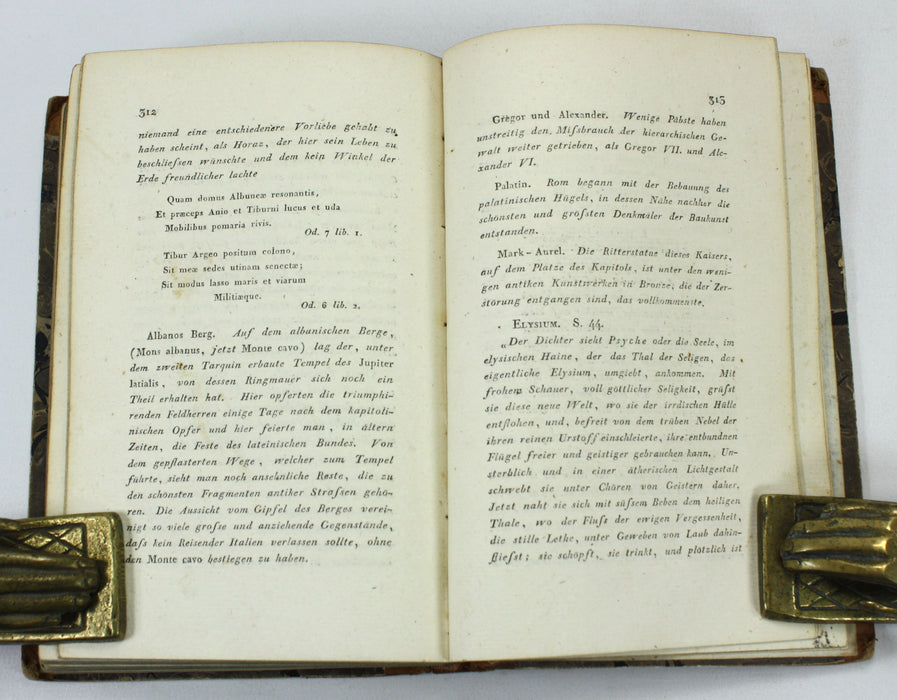 312
niemand eine entschiedenere Vorliebe gehabt zu
haben scheint, als Horaz, der hier sein Leben zu
beschliefsen wünschte und dem kein Winkel der
Erde freundlicher lachte
Quam domus Albuneæ resonantis,
Et præceps Anio et Tiburni lucus et uda
Mobilibus pomaria rivis.
Od. 7 lib. 1.
Tibur Argeo positum colono,
Sit meæ sedes utinam senectæ;
Sit modus lasso maris et viarum
Militiæque.
Od. 6 lib. 2.
Albanos Berg. Auf dem albanischen Berge,
(Mons albanus, jetzt Monte cavo) lag der, unter
dem zweiten Tarquin erbaute Tempel des Jupiter
latialis, von dessen Ringmauer sich noch ein
Theil erhalten hat. Hier opferten die triumphi-
renden Feldherren einige Tage nach dem kapitoli-
nischen Opfer und hier feierte man, in ältern
Zeiten, die Feste des lateinischen Bundes. Von
dem gepflasterten Wege, welcher zum Tempel
führte, sieht man noch ansehnliche Reste, die zu
den schönsten Fragmenten antiker Strafsen gehö-
ren. Die Aussicht vom Gipfel des Berges verei-
nigt so viele grofse und anziehende Gegenstände,
dafs kein Reisender Italien verlassen sollte, ohne
den Monte cavo bestiegen zu haben.
313
Gregor und Alexander. Wenige Päbste haben
unstreitig den Mifsbrauch der hierarchischen Ge-
walt weiter getrieben, als Gregor VII. und Ale-
xander VI.
Palatin. Rom begann mit der Bebauung des
palatinischen Hügels, in dessen Nähe nachher die
schönsten und grofsten Denkmäler der Baukunst
entstanden.
Mark-Aurel. Die Ritterstatue dieses Kaisers,
auf dem Platze des Kapitols, ist unter den weni-
gen antiken Kunstwerken in Bronze, die der Zer-
störung entgangen sind, das vollkommenste.
ELYSIUM. S. 44.
„Der Dichter sieht Psyche oder die Seele, im
elysischen Haine, der das Thal der Seligen, des
eigentliche Elysium, umgiebt, ankommen. Mit
frohem Schauer, voll göttlicher Seligkeit, grüfst
sie diese neue Welt, wo sie der irrdischen Hülle
entflohen, und, befreit von dem trüben Nebel der
ihren reinen Urstoff einschleierte, ihre entbundnen
Flügel freier und geistiger gebrauchen kann. Un-
sterblich und in einer ätherischen Lichtgestalt
schwebt sie unter Chören von Geistern daher.
Jetzt naht sie sich mit süfsem Beben dem heiligen
Thale, wo der Flufs der ewigen Vergessenheit,
die stille Lethe, unter Geweben von Laub dahin-
fliefst; sie schöpft, sie trinkt, und plötzlich ist